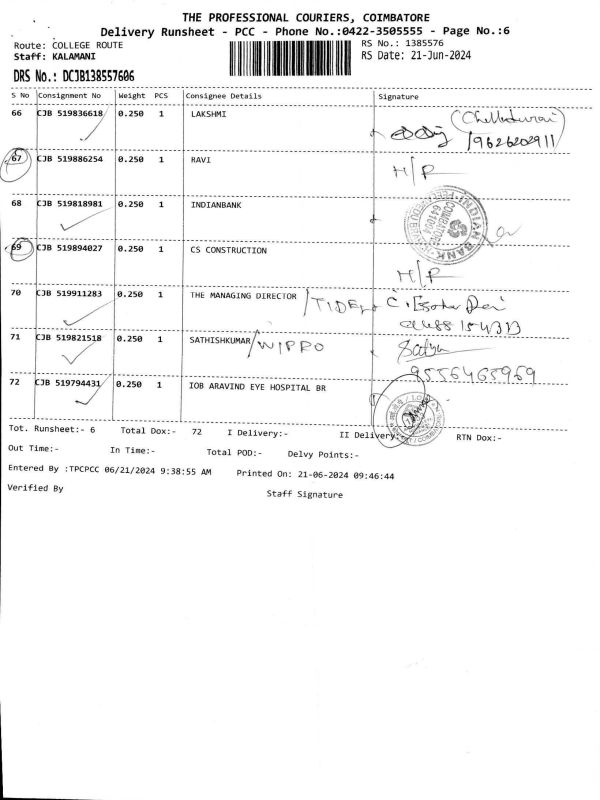 THE PROFESSIONAL COURIERS, COIMBATORE
Delivery Runsheet - PCC - Phone No.:0422-3505555 - Page No.:6
Route: COLLEGE ROUTE RS No.: 1385576
Staff: KALAMANI RS Date: 21-Jun-2024
DRS No.: DCJB138557606
S No Consignment No Weight PCS Consignee Details Signature
66 CJB 519836618 0.250 1 LAKSHMI
9626202911
67 CJB 519886254 0.250 1 RAVI H/P
68 CJB 519818981 0.250 1 INDIANBANK
69 CJB 519894027 0.250 1 CS CONSTRUCTION H/P
70 CJB 519911283 0.250 1 THE MANAGING DIRECTOR /TIDEL
71 CJB 519821518 0.250 1 SATHISHKUMAR /WIPRO Satya
9556465969
72 CJB 519794431 0.250 1 IOB ARAVIND EYE HOSPITAL BR
Tot. Runsheet:- 6 Total Dox:- 72 I Delivery:- II Delivery:- RTN Dox:-
Out Time:- In Time:- Total POD:- Delvy Points:-
Entered By :TPCPCC 06/21/2024 9:38:55 AM Printed On: 21-06-2024 09:46:44
Verified By Staff Signature